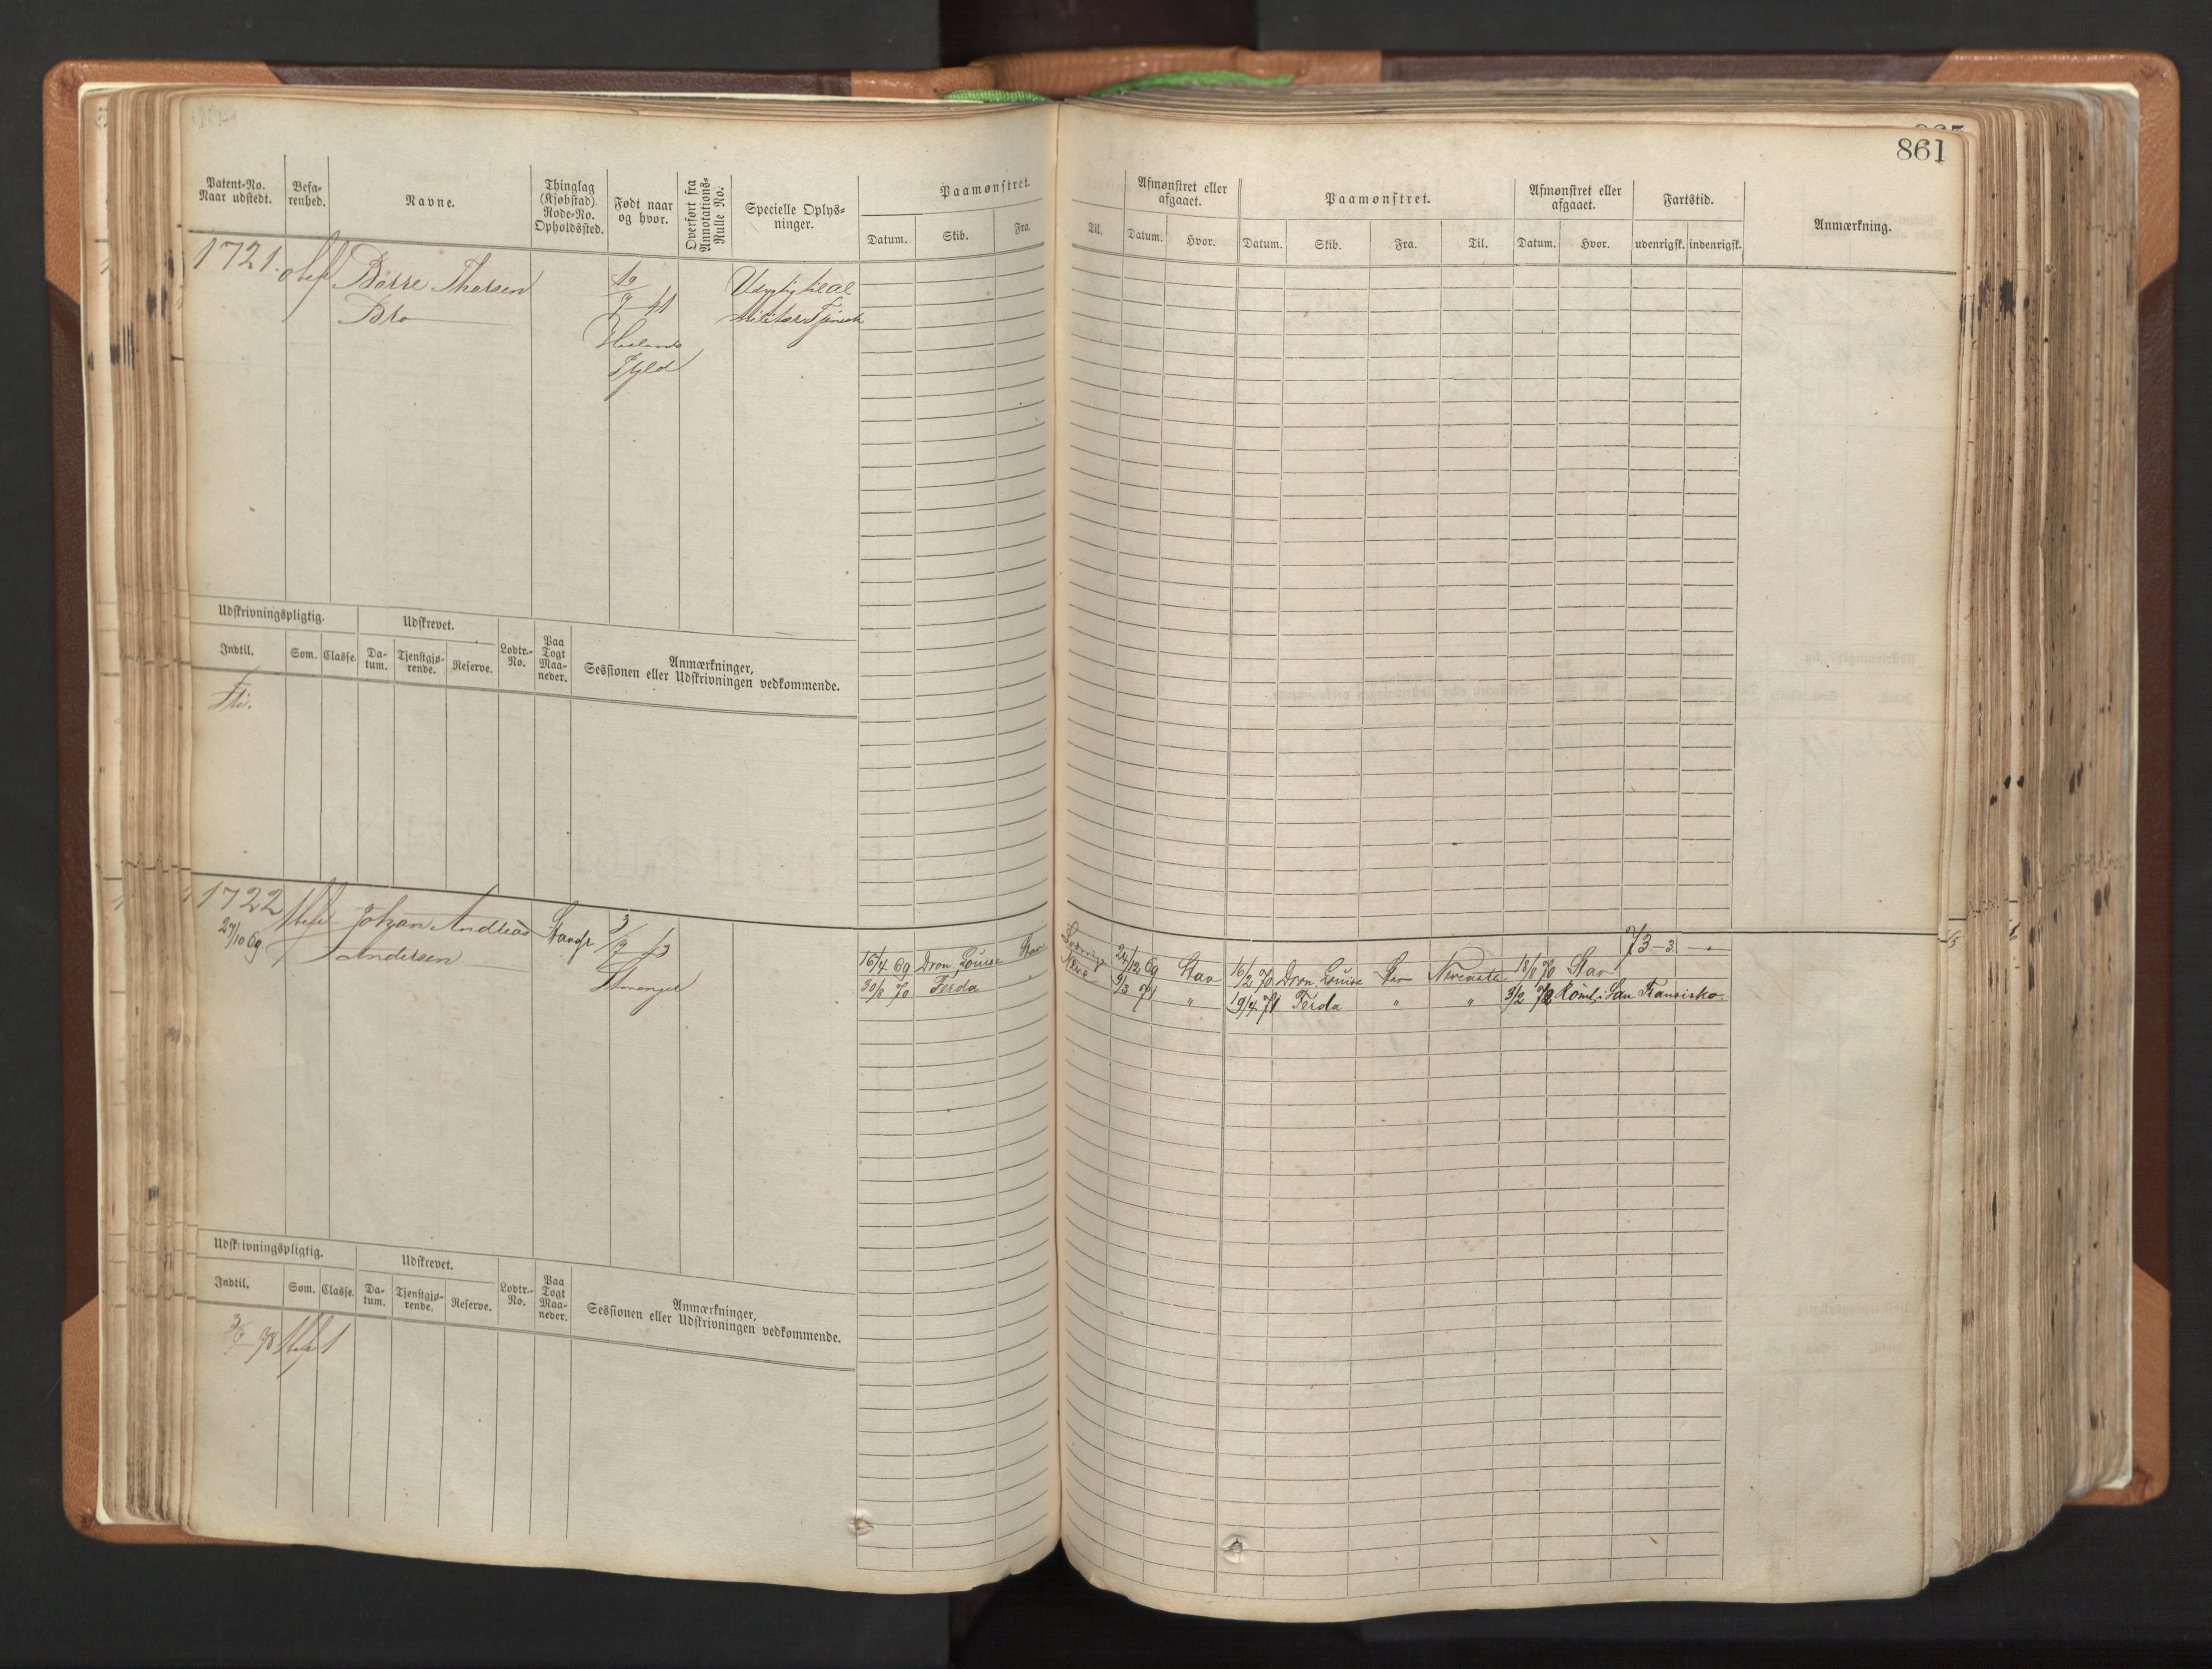 861
Patent-No.
Naar udstedt.
Befa-
renhed.
Navne.
Thinglag
(Kjøbstad).
Rode-No.
Opholdssted.
Født naar
og hvor.
Overført fra
Annotations-
Rulle No.
Specielle Oplys-
ninger.
Paamønstret.
Datum.
Skib.
Fra.
Til.
Afmønstret eller
afgaaet.
Datum.
Hvor.
Paamønstret.
Datum.
Skib.
Fra.
Til.
Afmønstret eller
afgaaet.
Datum.
Hvor.
Fartstid.
udenrigsk.
indenrigsk.
Anmærkning.
1721.
Børre Thorsen
Bro
19
9 41
Haalands
Pgld
Udygtig til al
Militær Tjeneste
Udskrivningspligtig.
Udskrevet.
Indtil.
Som.
Classe.
Da-
tum.
Tjenstgjø-
rende.
Reserve.
Lodtr.-
No.
Paa
Togt
Maa-
neder.
Anmærkninger,
Sessionen eller Udskrivningen vedkommende.
Fri.
1722
27/10 69.
Johan Andreas
Andersen
3/9 43
Stavanger
16/4 69 Dron. Louise Stav
30/8 70 Ferda "
24/12 69 Stav
9/3 71 "
16/2 70 Dron. Louise Stav
19/4 71 Ferda " "
18/8 70 Stav
3/2 72 Røml. i San Fransisko
73 - 3.
Udskrivningspligtig.
Udskrevet.
Indtil.
Som.
Classe.
Da-
tum.
Tjenstgjø-
rende.
Reserve.
Lodtr.-
No.
Paa
Togt
Maa-
neder.
Anmærkninger,
Sessionen eller Udskrivningen vedkommende.
3/9 78
1